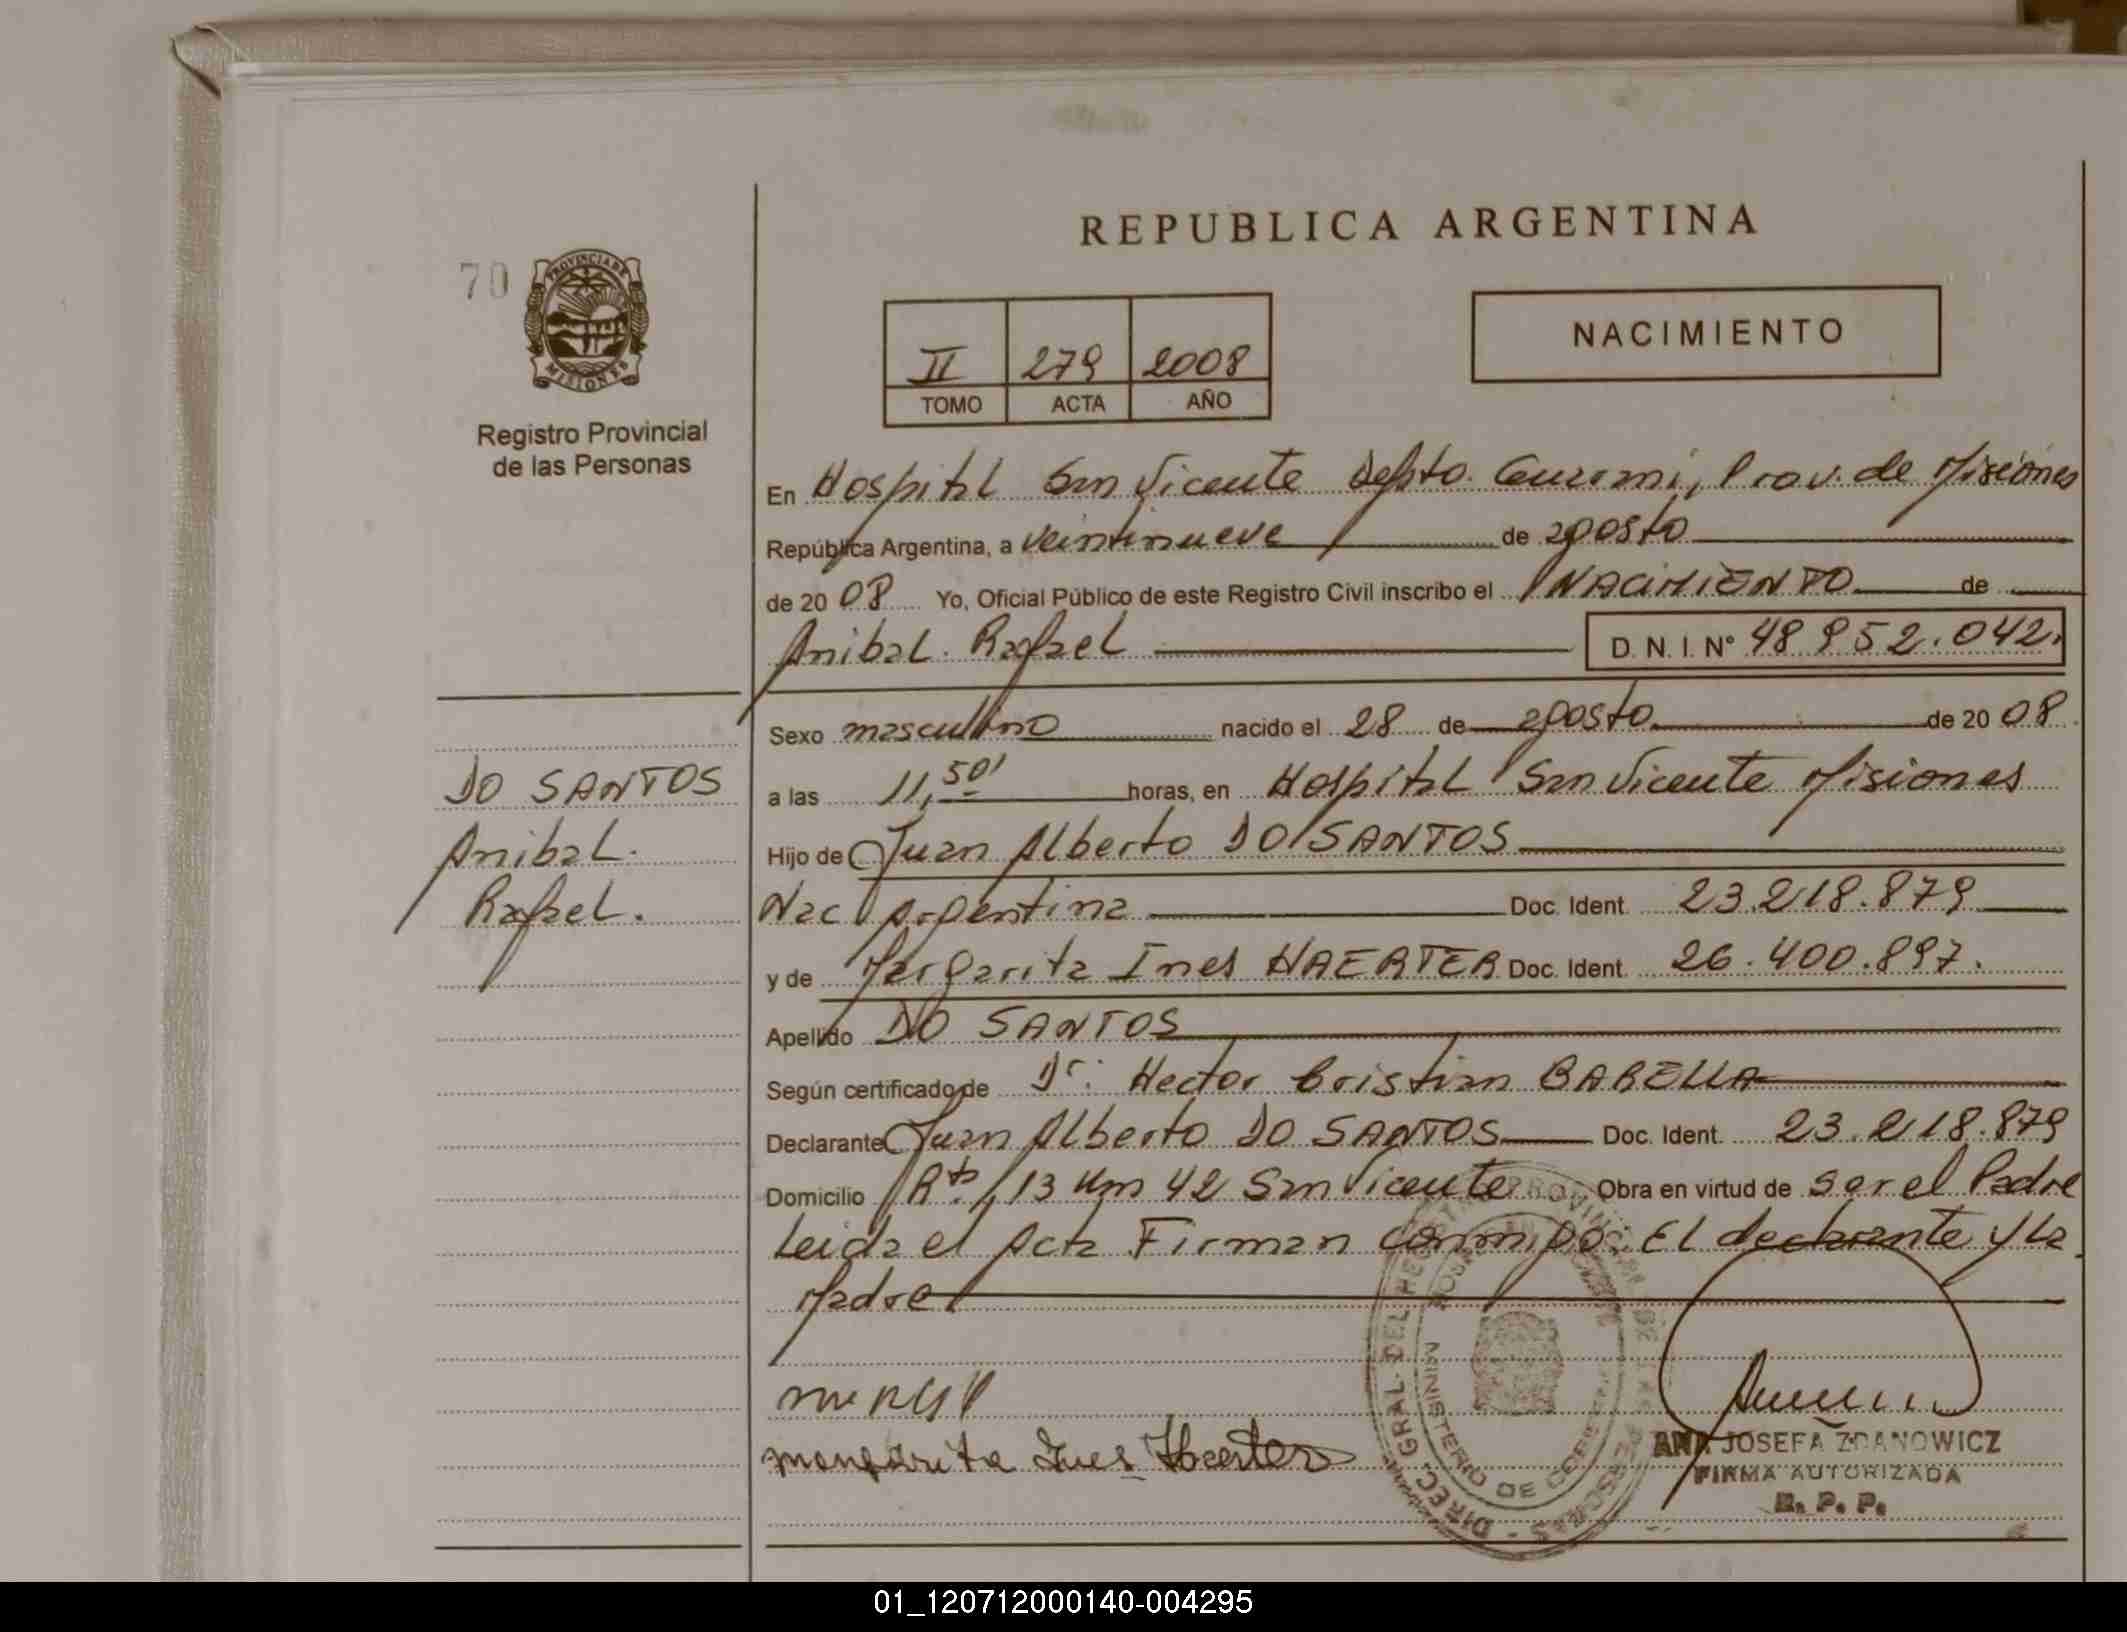 REPUBLICA ARGENTINA
70
PROVINCIA DE
MISIONES
Registro Provincial
de las Personas
II 279 2008
TOMO ACTA AÑO
NACIMIENTO
En Hospital San Vicente Depto. Guaraní, Prov. de Misiones
República Argentina, a veintinueve de agosto
de 20 08 Yo, Oficial Público de este Registro Civil inscribo el NACIMIENTO de
Anibal Rafael D. N. I. Nº 48 952.042.
Sexo masculino nacido el 28 de agosto de 20 08
a las 11,50' horas, en Hospital San Vicente Misiones
Hijo de Juan Alberto DO SANTOS
Nac Argentina Doc. Ident. 23.218.879
y de Margarita Ines HAERTER Doc. Ident. 26.400.897.
Apellido DO SANTOS
Según certificado de Dr: Hector Cristian BARELLA
Declarante Juan Alberto DO SANTOS Doc. Ident. 23.218.879
Domicilio Rta, 13 Km 42 San Vicente Obra en virtud de ser el Padre
Leida el Acta Firman conmigo: El declarante y La
Madre
DO SANTOS
Anibal
Rafael.
Margarita Ines Haerter
DIREC. GRAL. DEL REGISTRO PROVINCIAL DE LAS PERSONAS
MINISTERIO DE
ANA JOSEFA ZDANOWICZ
FIRMA AUTORIZADA
R. P. P.
01_120712000140-004295